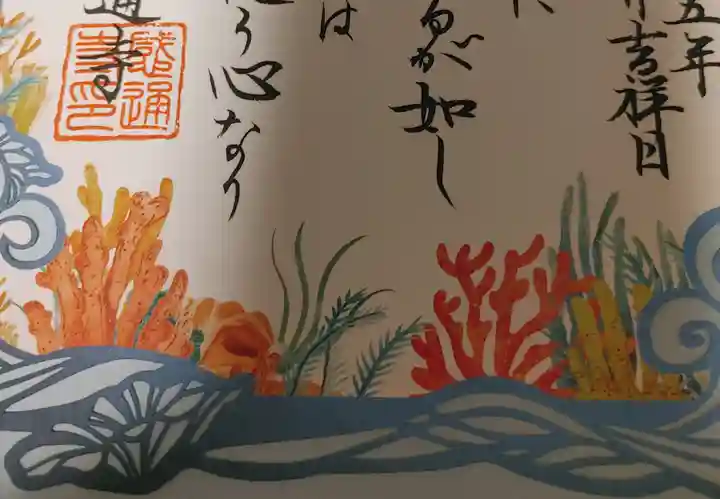 五年
吉祥日
が如し
は
心なり
通寺
感通寺印